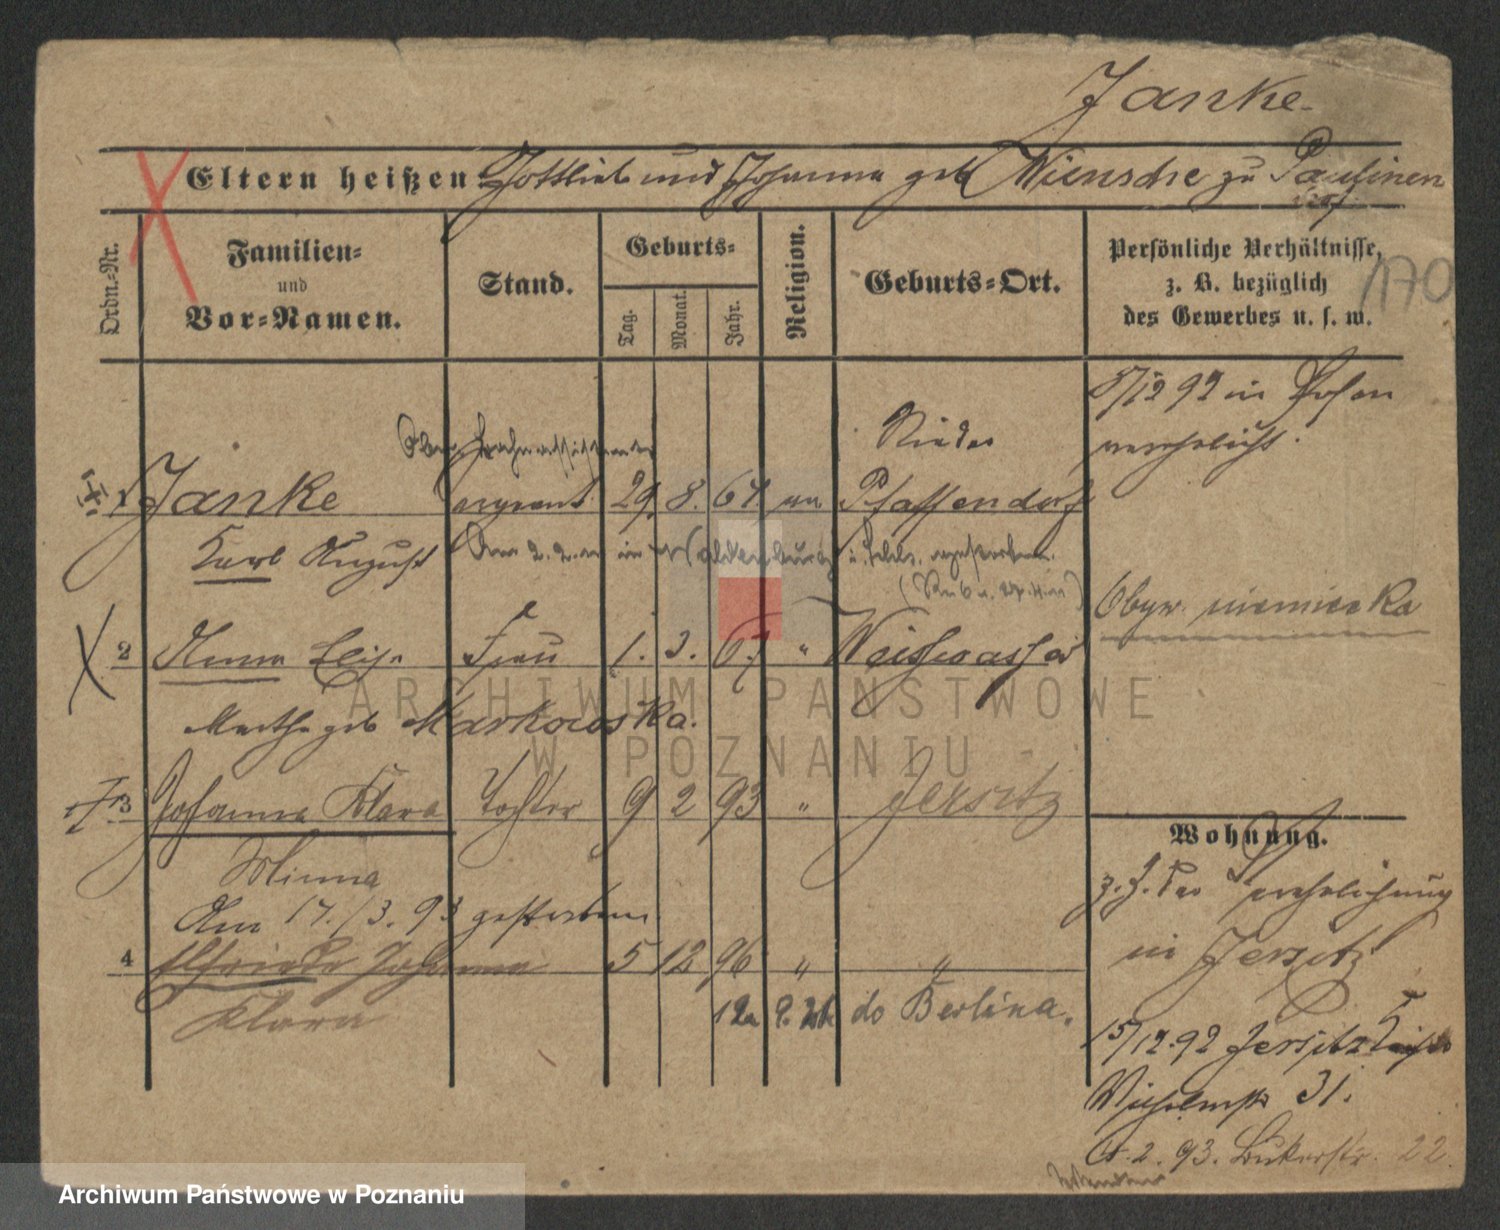 Janke
Eltern heißen: Gottlieb und Johanna geb Wiensche zu Paulinen
hof
Ordn.-Nr.
Familien-
und
Vor-Namen.
Stand.
Geburts-
Tag.
Monat.
Jahr.
Religion.
Geburts-Ort.
Persönliche Verhältnisse,
z. B. bezüglich
des Gewerbes u. s. w.
170
5/12 92 in Posen
verehelicht.
Nieder
1 Janke 29. 8. 67. ev Pfaffendorf
Karl August
Am 2. 2. in Waldenburg i. Schles. gestorben.
Obyw. niemiecka
2 Anna Elise Frau 1. 3. 67 " Weißwasser
Martha geb Markowska.
3 Johanna Klara Tochter 9 2 93 " Jersitz
Minna
Am 17./3. 93 gestorben
4 Elfriede Johanna 5 12 96 " "
Klara
do Berlina.
Wohnung.
z. Z. der Verehelichung
in Jersitz
15/12.92 Jersitz Kaiser
Wilhelmstr 31.
2. 93. Bukerstr. 22
ARCHIWUM PAŃSTWOWE
W POZNANIU
Archiwum Państwowe w Poznaniu